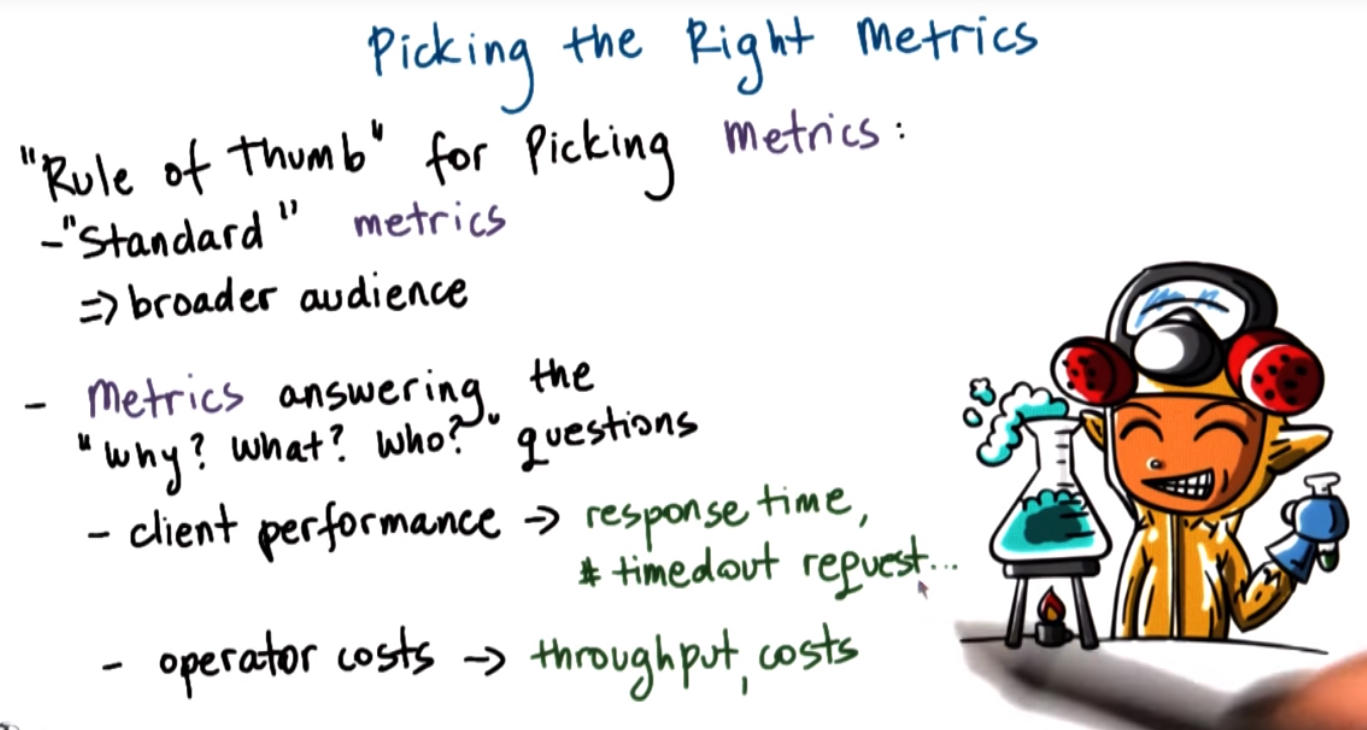 Picking the Right Metrics
"Rule of thumb" for Picking metrics:
-"Standard" metrics
=> broader audience
- Metrics answering the
"Why? What? Who?" questions
- client performance -> response time,
# timedout request...
- operator costs -> throughput, costs